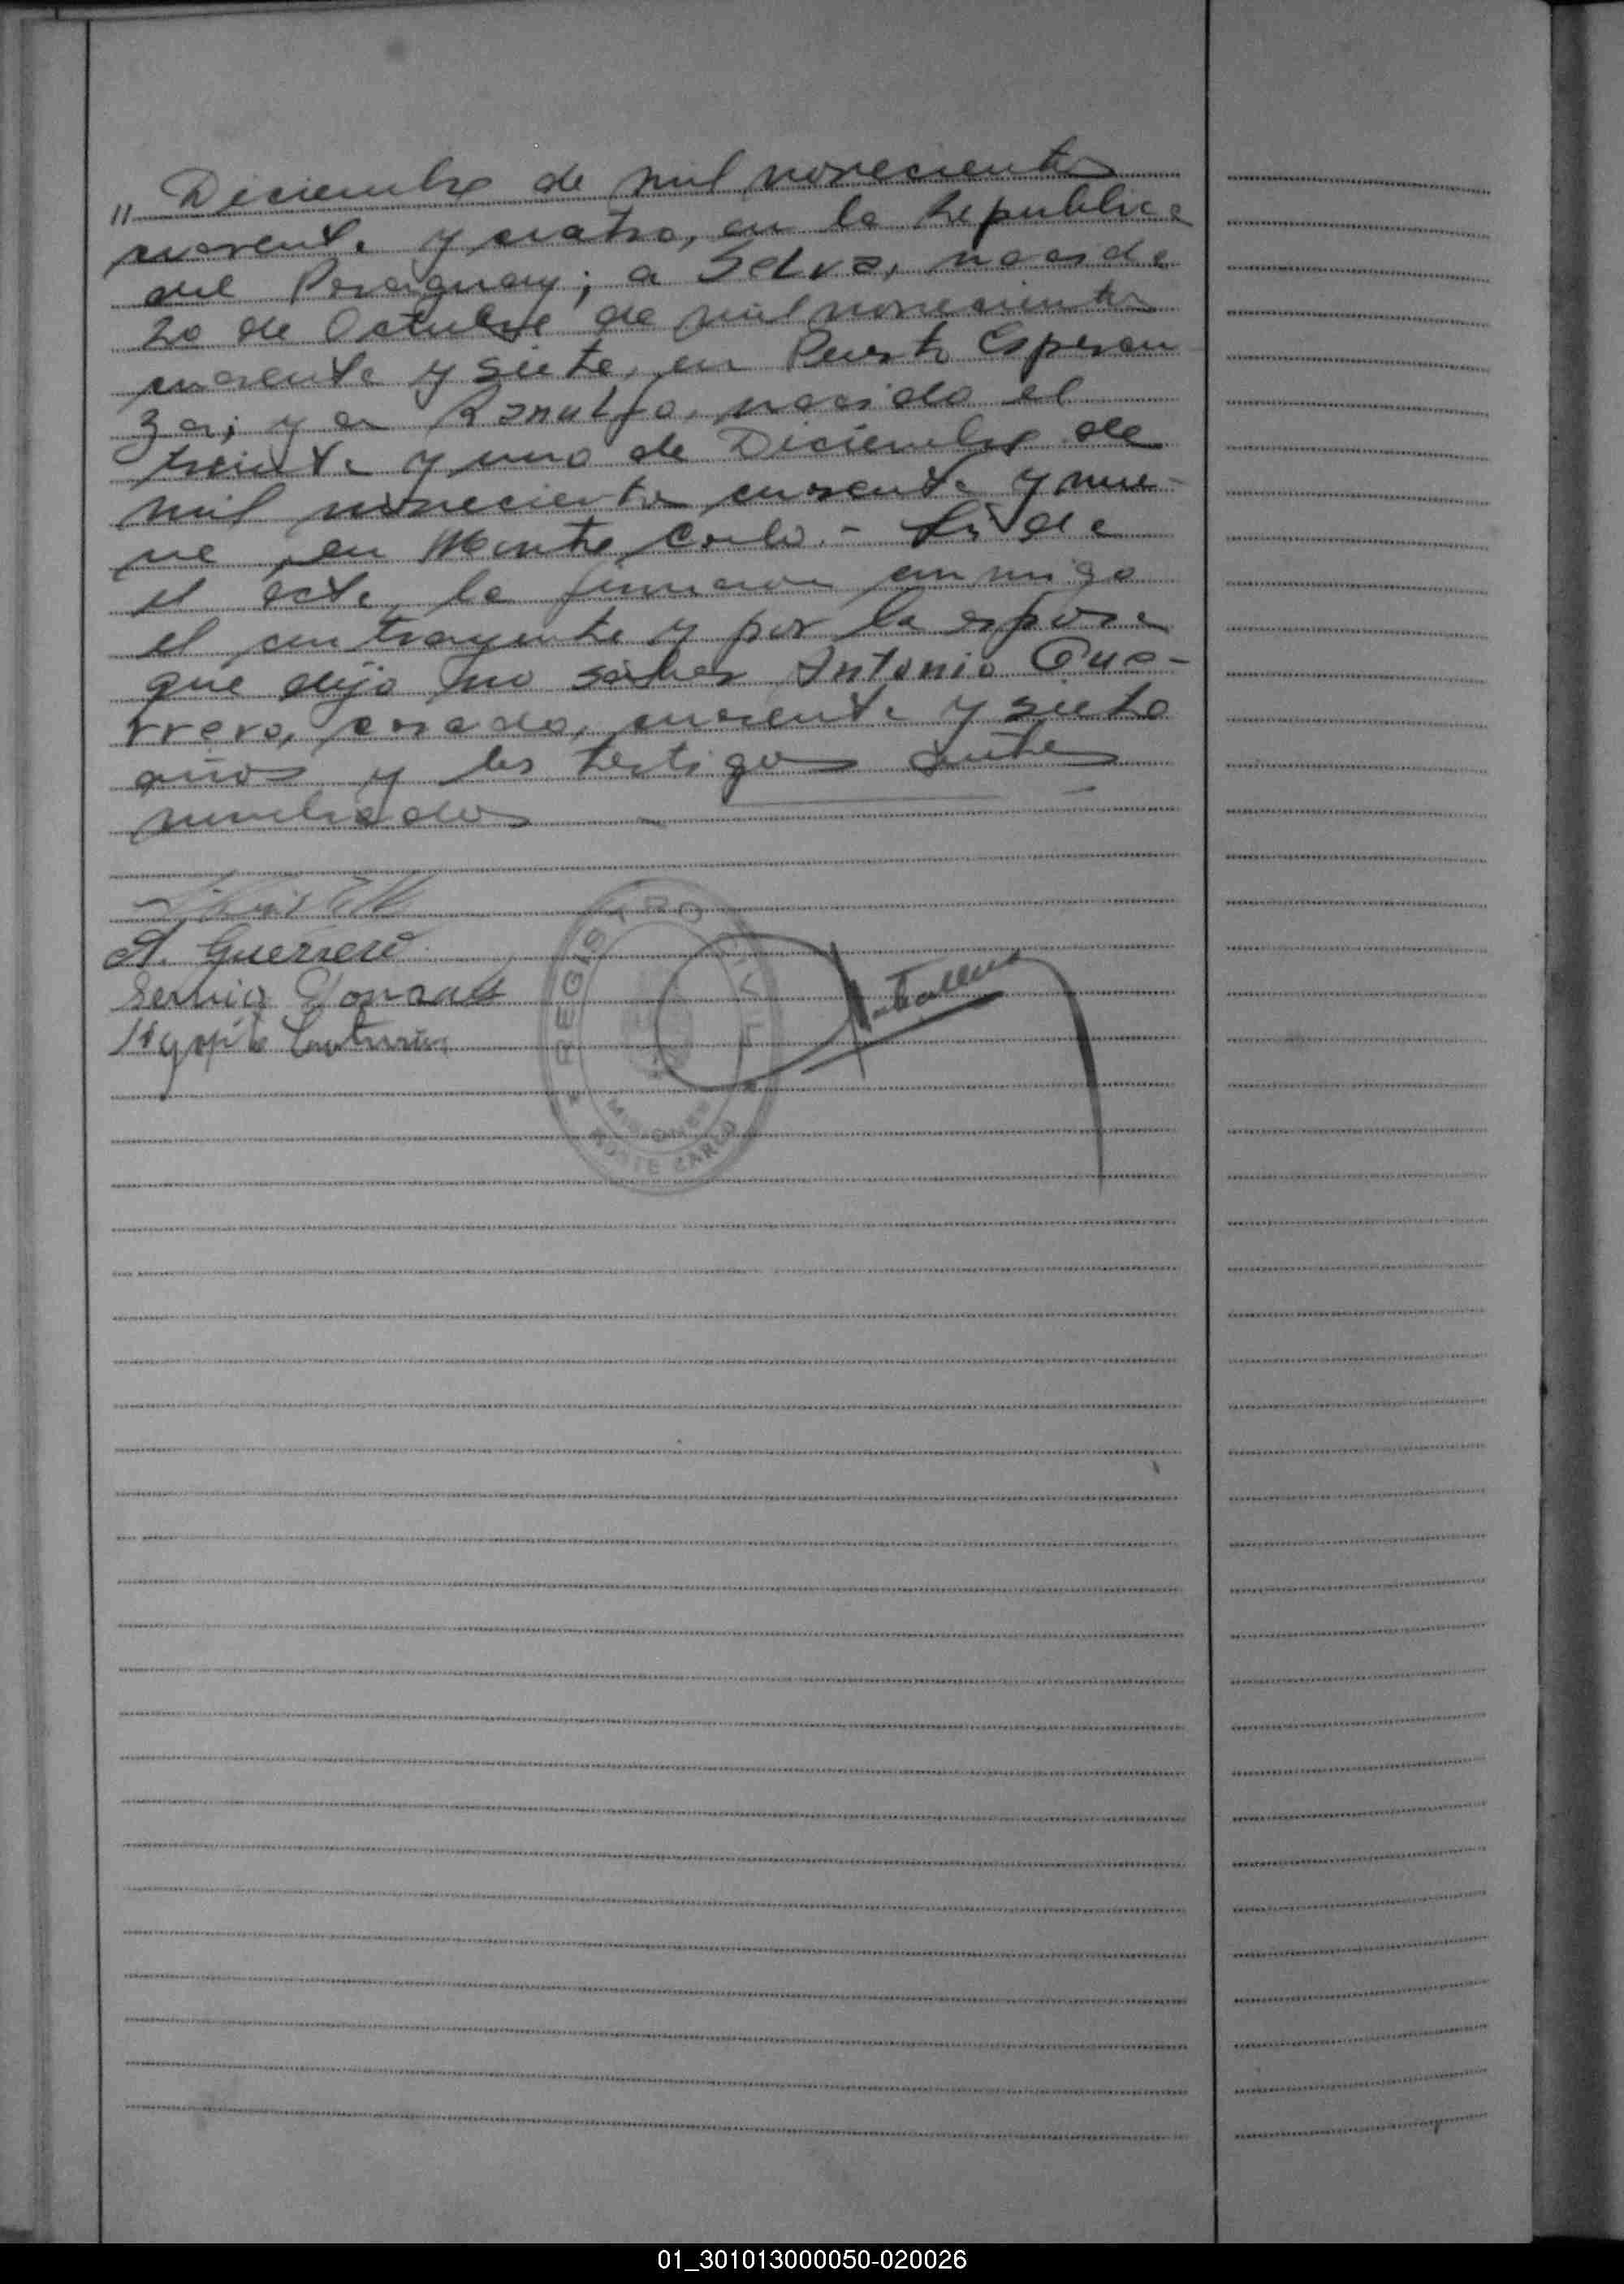 " Diciembre de mil novecientos
cuarenta y cuatro, en la Republica
del Paraguay; a Selva, nacida
20 de Octubre de mil novecientos
cuarenta y siete, en Puerto Esperan
za; y a Ranulfo, nacido el
treinta y uno de Diciembre de
mil novecientos cuarenta y nue-
ve, en Monte Carlo.- Leida
el acta, la firmaron conmigo
el contrayente y por la esposa
que dijo no saber Antonio Gue-
rrero, casado, cuarenta y siete
años y los testigos ante
nombrados
A. Guerrero
REGISTRO CIVIL
MISIONES
MONTE CARLO
01_301013000050-020026